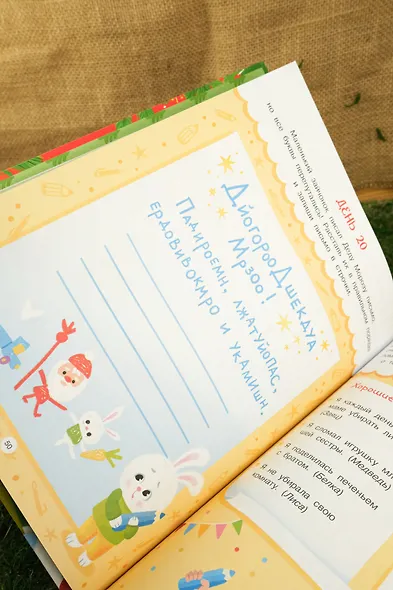 ДЕНЬ 20
Маленький зайчонок писал Деду Морозу письмо,
но все буквы перепутались! Расставь их в правильном порядке
и запиши письмо в строчки.
ДЙОГОРОО ДШЕКДУА
МРЗОО!
ПАДИРОЕМН, ЛЖАТУЙОПАС,
ЕРДОВИВОКМРО И УКАМИШН.
50
Хорошие
я каждый день
маме убирать
я сломал игрушку
шей сестры. (Медведь)
я поделилась печеньем
с братом. (Белка)
я не убирала свою
комнату. (Лиса)